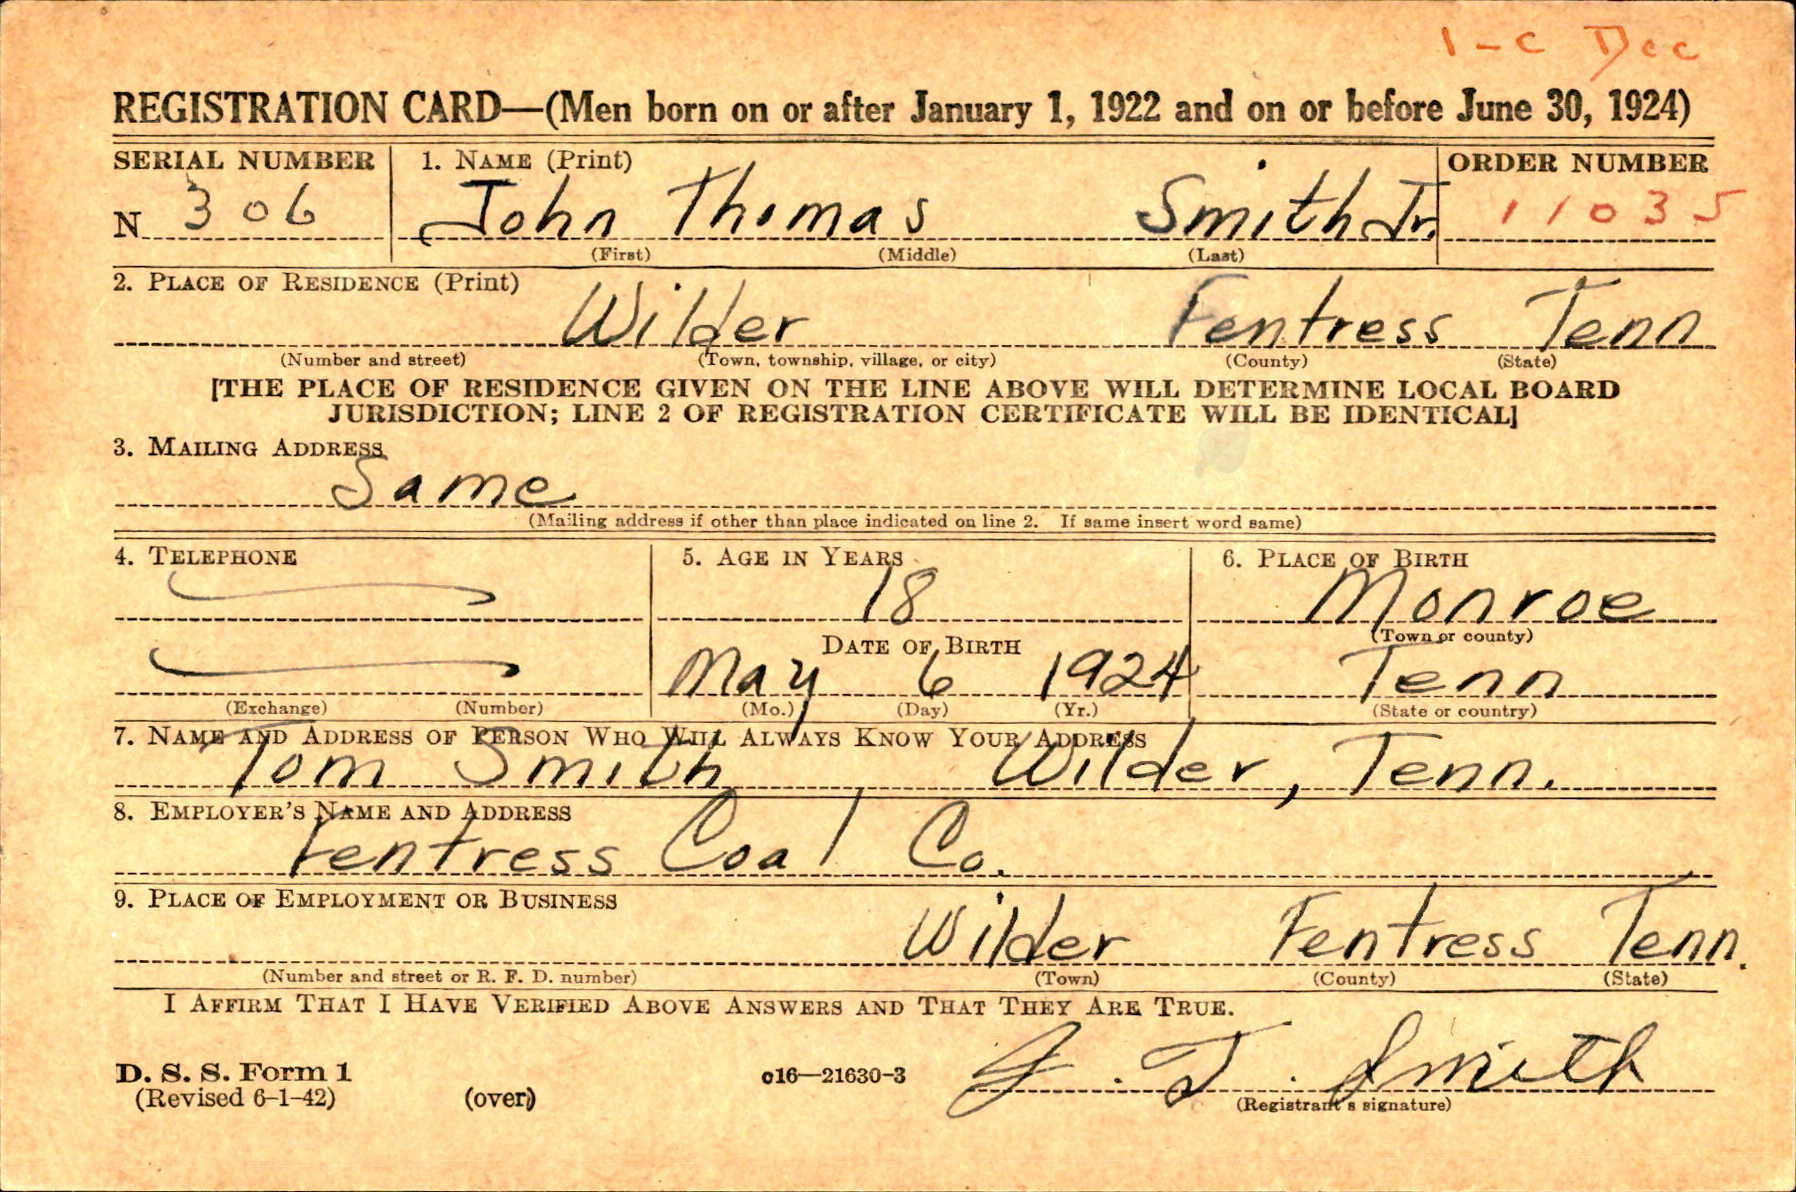 1-C Dec
REGISTRATION CARD—(Men born on or after January 1, 1922 and on or before June 30, 1924)
SERIAL NUMBER 1. NAME (Print) ORDER NUMBER
N 306 John Thomas Smith Jr. 11035
(First) (Middle) (Last)
2. PLACE OF RESIDENCE (Print)
Wilder Fentress Tenn
(Number and street) (Town, township, village, or city) (County) (State)
[THE PLACE OF RESIDENCE GIVEN ON THE LINE ABOVE WILL DETERMINE LOCAL BOARD
JURISDICTION; LINE 2 OF REGISTRATION CERTIFICATE WILL BE IDENTICAL]
3. MAILING ADDRESS
Same
(Mailing address if other than place indicated on line 2. If same insert word same)
4. TELEPHONE 5. AGE IN YEARS 6. PLACE OF BIRTH
18 Monroe
DATE OF BIRTH (Town or county)
May 6 1924 Tenn
(Exchange) (Number) (Mo.) (Day) (Yr.) (State or country)
7. NAME AND ADDRESS OF PERSON WHO WILL ALWAYS KNOW YOUR ADDRESS
Tom Smith Wilder, Tenn.
8. EMPLOYER'S NAME AND ADDRESS
Fentress Coal Co.
9. PLACE OF EMPLOYMENT OR BUSINESS
Wilder Fentress Tenn.
(Number and street or R. F. D. number) (Town) (County) (State)
I AFFIRM THAT I HAVE VERIFIED ABOVE ANSWERS AND THAT THEY ARE TRUE.
D. S. S. Form 1 c16—21630-3 J. T. Smith
(Revised 6-1-42) (over) (Registrant's signature)